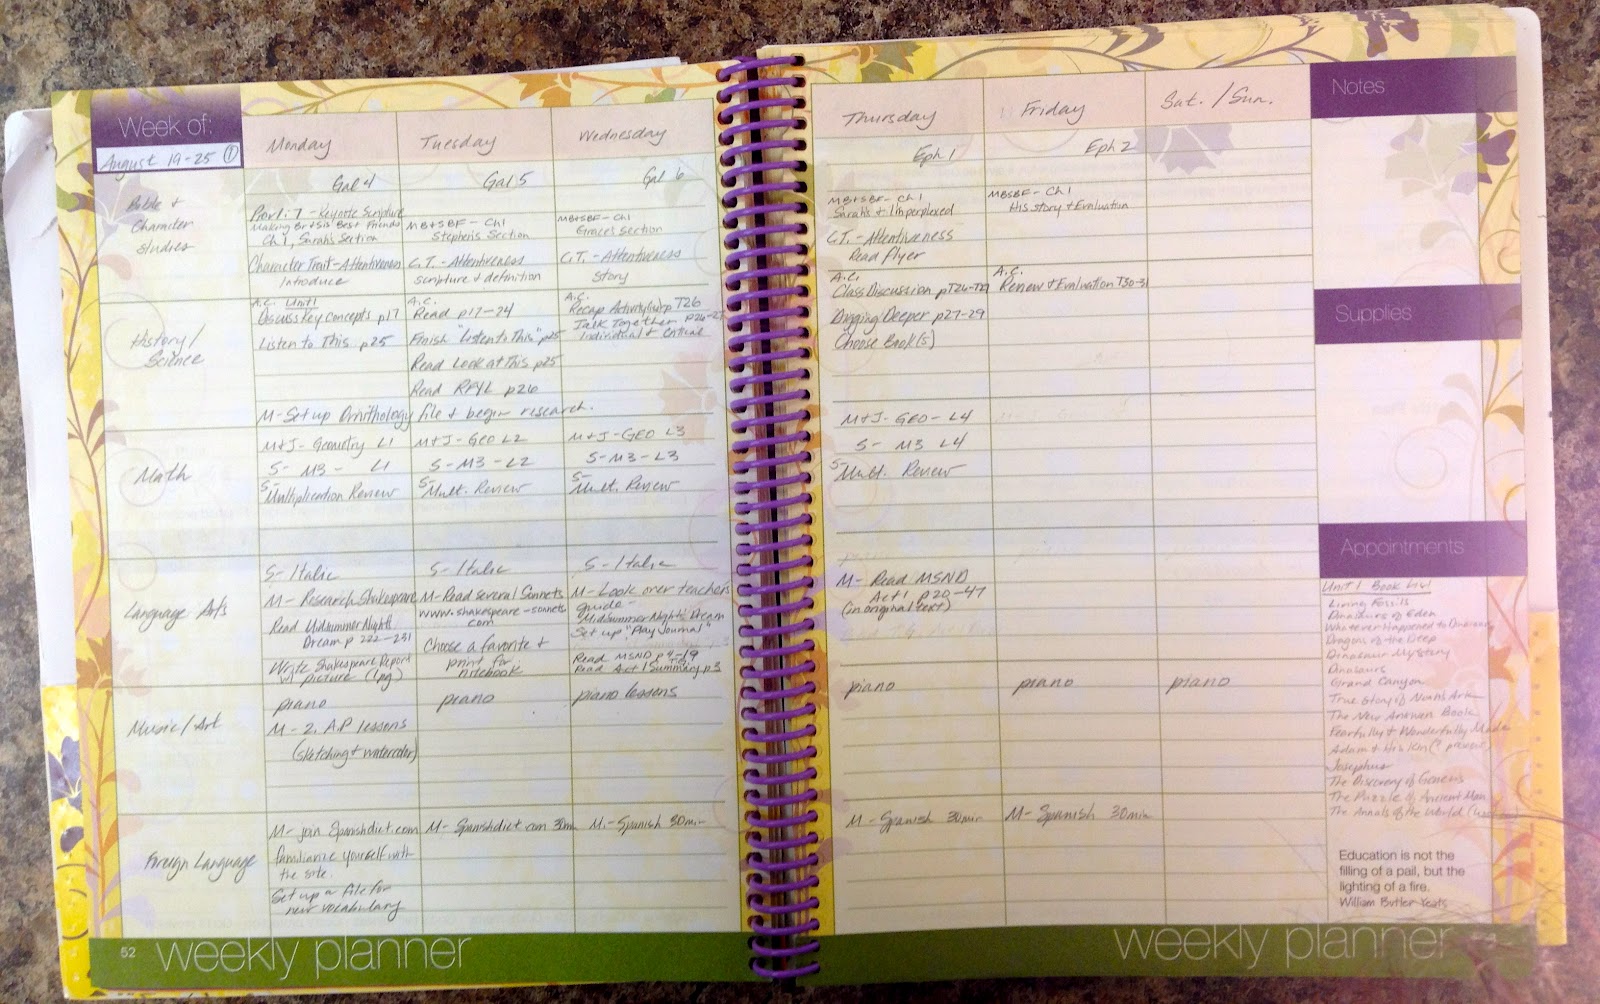 Week of:
August 19-25 ①
Monday
Tuesday
Wednesday
Thursday
Friday
Sat. / Sun.
Bible +
Character
Studies
Gal 4
Prov 1:7 - Keynote Scripture
Making Br + Sis' Best Friends
Ch 1, Sarah's Section
Character Trait - Attentiveness
Introduce
Gal 5
MB+SBF - Ch 1
Stephen's Section
C.T. - Attentiveness
scripture + definition
Gal 6
MB+SBF - Ch 1
Grace's Section
C.T. - Attentiveness
Story
Eph 1
MB+SBF - Ch 1
Sarah's + I'm perplexed
C.T. - Attentiveness
Read Flyer
Eph 2
MBSBF - Ch 1
His story + Evaluation
History/
Science
A.C. Unit 1
Discuss Key concepts p17
Listen to This p25
A.C.
Read p17-24
Finish "Listen to This" p25
Read Look at This p25
Read RFYL p26
A.C.
Recap T26
Talk Together p26-27
Individual + Critical
A.C.
Class Discussion p T26-T27
Digging Deeper p27-29
Choose Book(s)
A.C.
Review + Evaluation T30-31
M - Set up Ornithology file + begin research.
Math
M+J - Geometry L1
S - M3 - L1
S-
Multiplication Review
M+J - GEO L2
S - M3 - L2
S-
Mult. Review
M+J - GEO L3
S - M3 - L3
S-
Mult. Review
M+J - GEO - L4
S - M3 L4
S-
Mult. Review
Language Arts
S - Italic
M - Research Shakespeare
Read Midsummer Night's
Dream p 222-231
Write Shakespeare Report
w/ picture (1pg)
S - Italic
M - Read several Sonnets
www.shakespeare-sonnets.
com
Choose a favorite +
print for
notebook
S - Italic
M - Look over teacher's
guide -
Midsummer Night's Dream
Set up "Play Journal"
Read MSND p4-19
Read Act 1 Summary p3
M - Read MSND
Act 1 p20-47
(in original text)
Music / Art
piano
M - 2. A.P lessons
(sketching + watercolor)
piano
piano lessons
piano
piano
piano
Foreign Language
M - join Spanishdict.com
familiarize yourself with
the site.
Set up a file for
new vocabulary
M - Spanishdict.com 30min
M - Spanish 30min
M - Spanish 30min
M - Spanish 30min
Notes
Supplies
Appointments
Unit 1 Book List
Living Fossils
Dinosaurs of Eden
Whatever Happened to Dinosaurs
Dragons of the Deep
Dinosaur Mystery
Dinosaurs
Grand Canyon
True Story of Noah's Ark
The New Answers Book
Fearfully + Wonderfully Made
Adam + His Kin
Josephus
The Discovery of Genesis
The Puzzle of Ancient Man
The Annals of the World
Education is not the
filling of a pail, but the
lighting of a fire.
William Butler Yeats
52 weekly planner
weekly planner